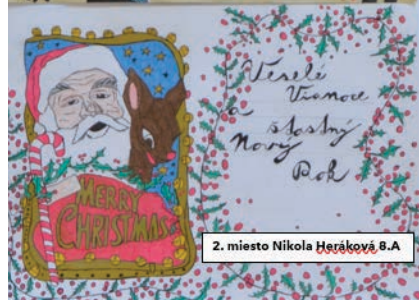 MERRY
CHRISTMAS
Veselé
Vianoce
a
štastný
Nový
Rok
2. miesto Nikola Heráková 8.A